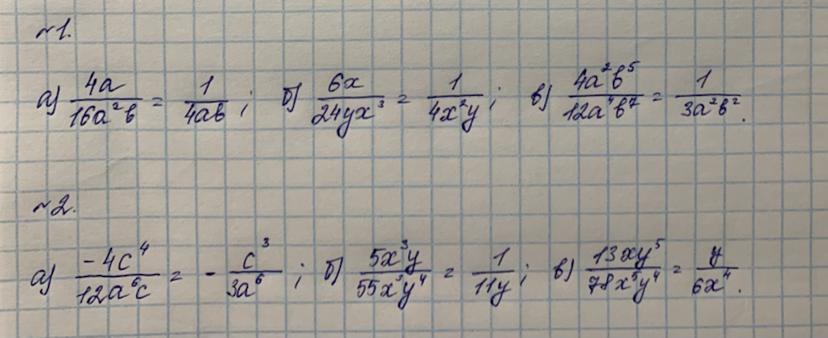 №1.
а) 4a/16a²b = 1/4ab; б) 6x/24yx³ = 1/4x²y; в) 4a²b⁵/12a⁴b⁷ = 1/3a²b².
№2.
а) -4c⁴/12a⁶c = - c³/3a⁶; б) 5x³y/55x³y⁴ = 1/11y; в) 13xy⁵/78x⁵y⁴ = y/6x⁴.